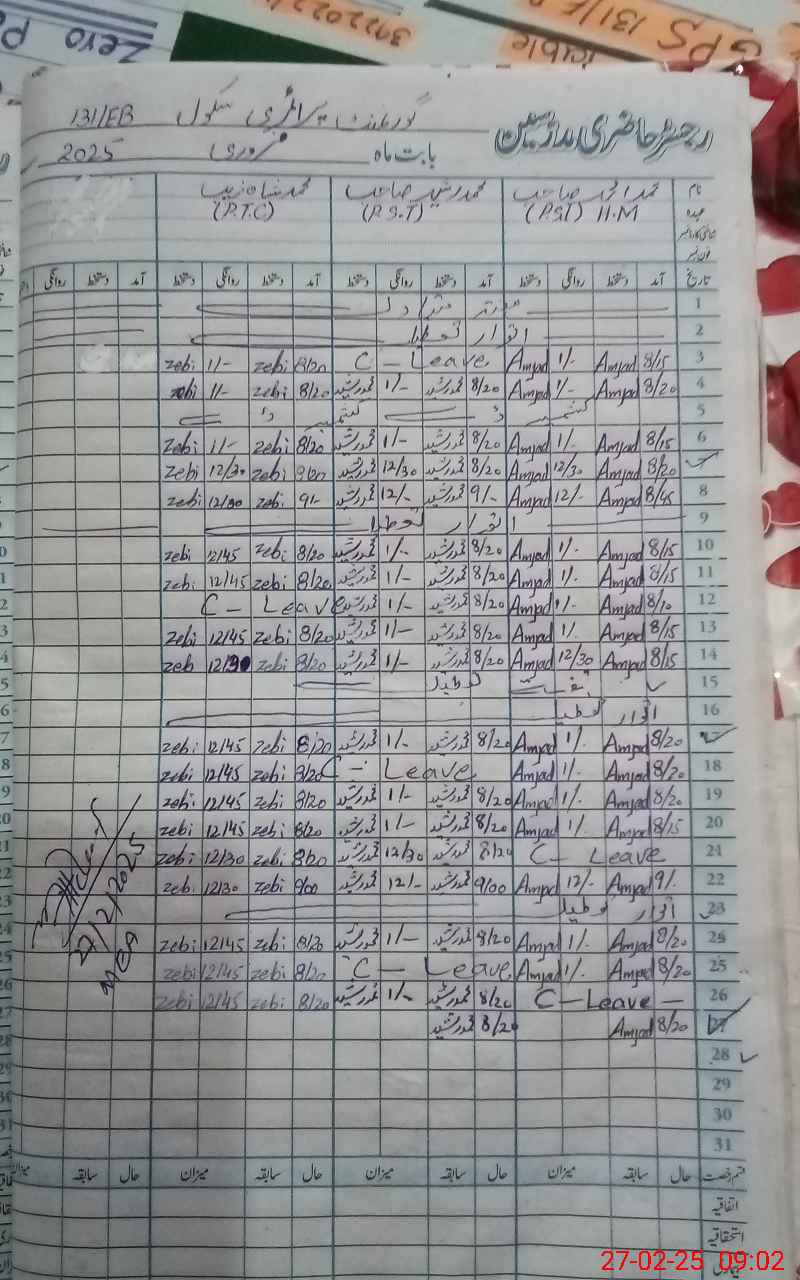 Zero P
3922022
icable
GPS 131/F
رجسٹر حاضری مدرسین گورنمنٹ پرائمری سکول 131/EB
بابت ماہ فروری 2025
نام محمد امجد صاحب محمد رشید صاحب محمد شاہ زیب
عہدہ (P.S.T) H.M (P.S.T) (P.T.C)
تاریخ آمد دستخط روانگی دستخط آمد دستخط روانگی دستخط آمد دستخط روانگی دستخط آمد دستخط روانگی
1
2 اتوار تعطیل
3 8/15 Amjad 1/- Amjad C - Leave 8/20 zebi 1/- zebi
4 8/20 Amjad 1/- Amjad 8/20 محمد رشید 1/- محمد رشید 8/20 zebi 1/- zebi
5 کشمیر ڈے کشمیر ڈے
6 8/15 Amjad 1/- Amjad 8/20 محمد رشید 1/- محمد رشید 8/20 zebi 1/- zebi
8/20 Amjad 12/30 Amjad 8/20 محمد رشید 12/30 محمد رشید 8/20 zebi 12/30 zebi
8 8/45 Amjad 12/- Amjad 9/- محمد رشید 12/- محمد رشید 9/- zebi 12/30 zebi
9 اتوار تعطیل
10 8/15 Amjad 1/- Amjad 8/20 محمد رشید 1/- محمد رشید 8/20 zebi 12/45 zebi
11 8/15 Amjad 1/- Amjad 8/20 محمد رشید 1/- محمد رشید 8/20 zebi 12/45 zebi
12 8/10 Amjad 1/- Amjad 8/20 محمد رشید 1/- محمد رشید C - Leave
13 8/15 Amjad 1/- Amjad 8/20 محمد رشید 1/- محمد رشید 8/20 zebi 12/45 zebi
14 8/15 Amjad 12/30 Amjad 8/20 محمد رشید 1/- محمد رشید 8/20 zebi 12/30 zeb
15 تعطیل
16 اتوار تعطیل
8/20 Amjad 1/- Amjad 8/20 محمد رشید 1/- محمد رشید 8/20 zebi 12/45 zebi
18 8/20 Amjad 1/- Amjad C - Leave 8/20 zebi 12/45 zebi
19 8/20 Amjad 1/- Amjad 8/20 محمد رشید 1/- محمد رشید 8/20 zebi 12/45 zebi
20 8/15 Amjad 1/- Amjad 8/20 محمد رشید 1/- محمد رشید 8/20 zebi 12/45 zebi
21 C - Leave 8/20 محمد رشید 12/30 محمد رشید 8/20 zebi 12/30 zebi
22 9/- Amjad 12/- Amjad 9/00 محمد رشید 12/- محمد رشید 9/00 zebi 12/30 zebi
23 اتوار تعطیل
24 8/20 Amjad 1/- Amjad 8/20 محمد رشید 1/- محمد رشید 8/20 zebi 12/45 zebi
25 8/20 Amjad 1/- Amjad C - Leave 8/20 zebi 12/45 zebi
26 C - Leave - 8/20 محمد رشید 1/- محمد رشید 8/20 zebi 12/45 zebi
27 8/20 Amjad 8/20 محمد رشید
28
29
30
31
27/2/2025
MEA
قسم رخصت حال سابقہ میزان حال سابقہ میزان حال سابقہ میزان حال سابقہ
اتفاقیہ
استحقاقیہ
27-02-25 09:02